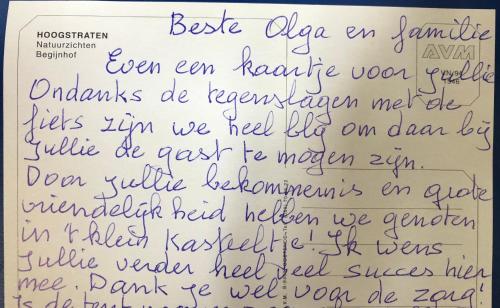 Beste Olga en familie
HOOGSTRATEN
Natuurzichten
Begijnhof
AVM
Even een kaartje voor jullie
Ondanks de tegenslagen met de
fiets zijn we heel blij om daar bij
jullie de gast te mogen zijn.
Door jullie bekommernis en grote
vriendelijkheid hebben we genoten
in 't klein kasteeltje! Ik wens
jullie verder heel veel succes hier
mee. Dank je wel voor de zorg!